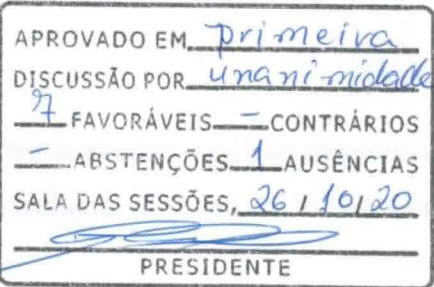 APROVADO EM primeira
DISCUSSÃO POR unanimidade
7 FAVORÁVEIS - CONTRÁRIOS
- ABSTENÇÕES 1 AUSÊNCIAS
SALA DAS SESSÕES, 26 / 10 / 20
PRESIDENTE